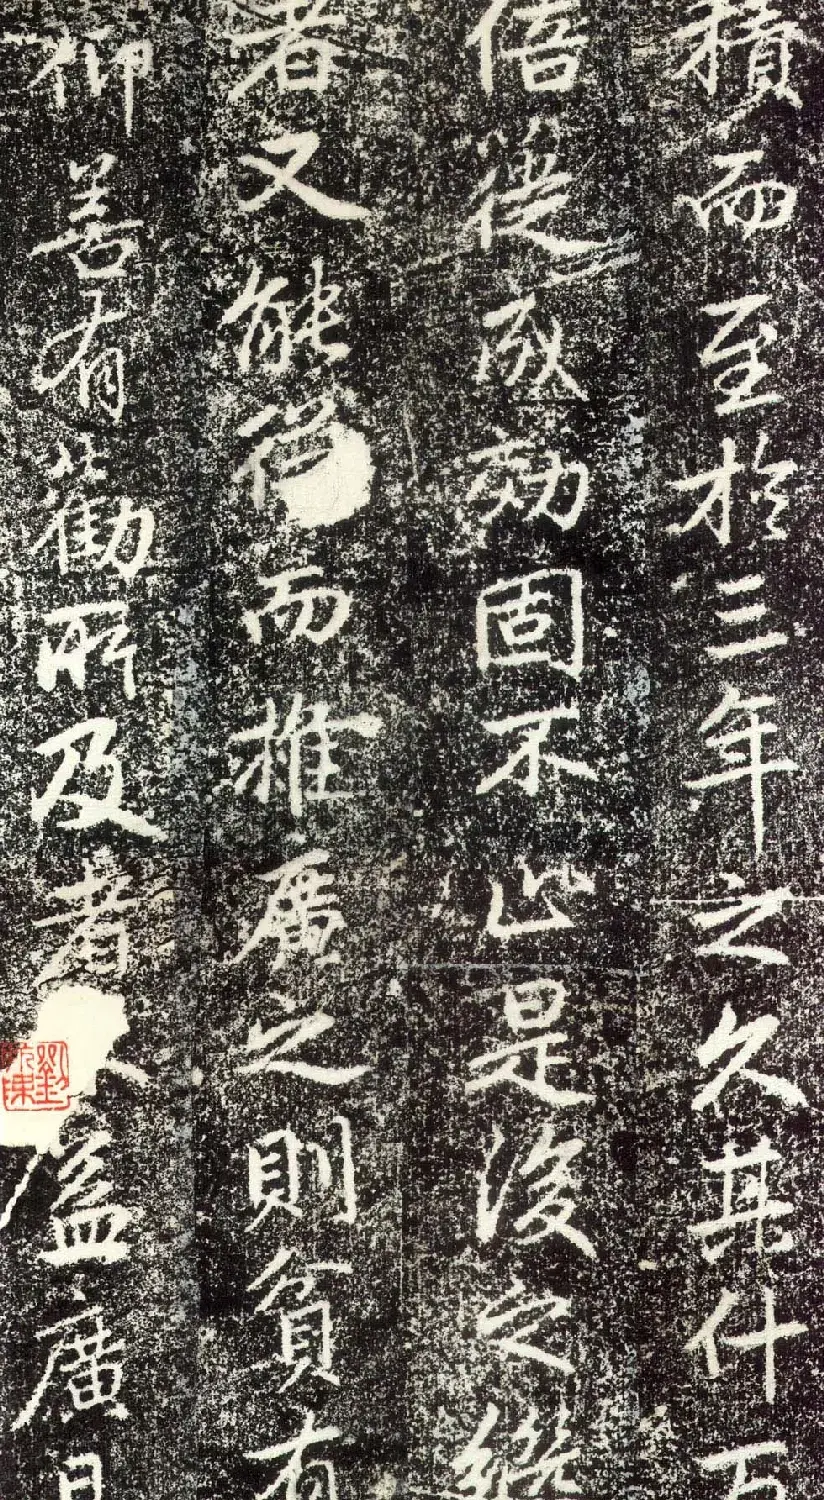 積而至於三年之久其什百
倍從成効固不止是後之繼
者又能從而推廣之則貧有
仰善有勸所及者益廣